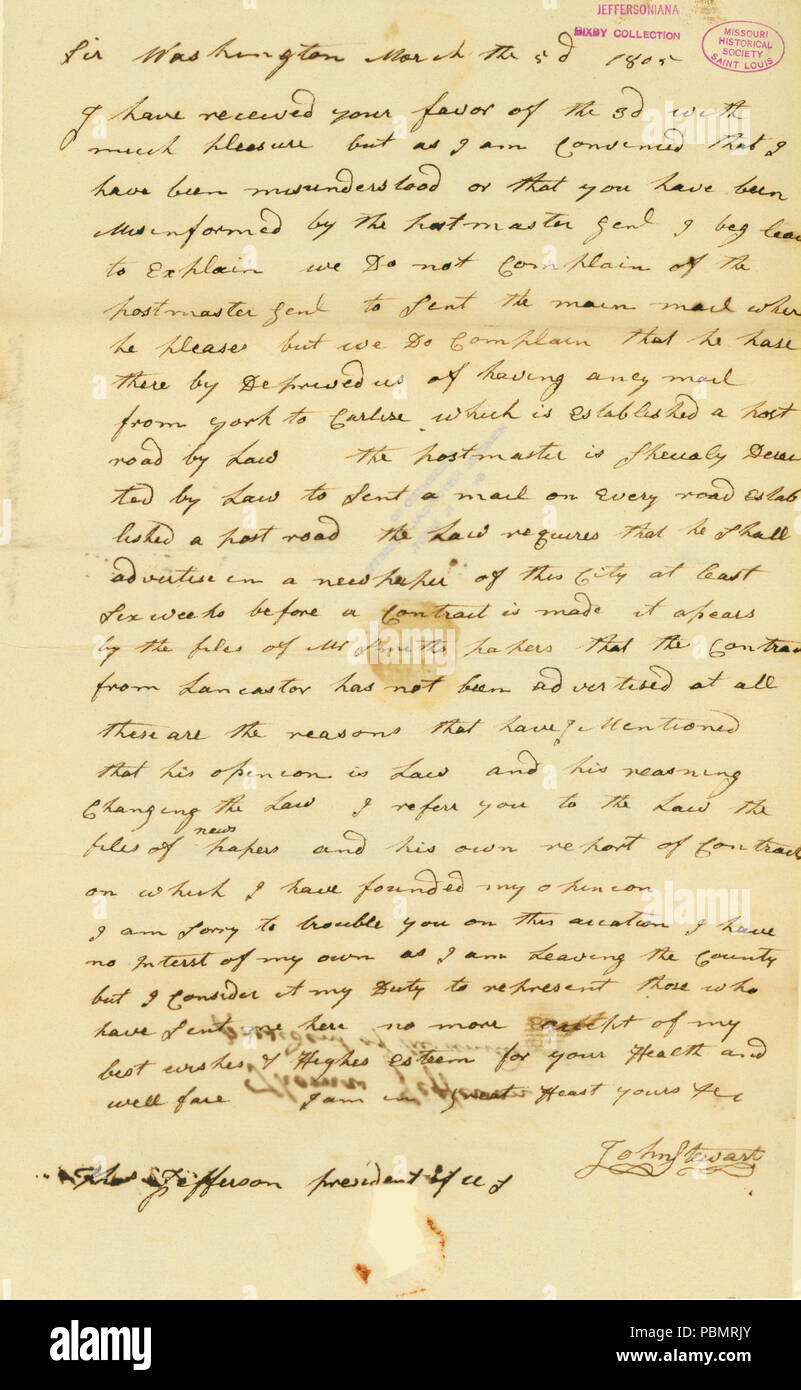 JEFFERSONIANA
BIXBY COLLECTION
MISSOURI
HISTORICAL
SOCIETY
SAINT LOUIS
Sir Washington March the 5d 1805
I have received your favor of the 3d with
much pleasure but as I am Convinced that I
have been misunderstood or that you have been
Misinformed by the postmaster Genl I beg leav
to Explain we Do not Complain of the
postmaster Genl to Sent the main mail wher
he pleases but we Do Complain that he hase
there by Deprived us of having aney mail
from york to Carlize which is Established a post
road by Law the postmaster is Direc
ted by Law to Sent a mail on Every road Estab
lished a post road the Law requires that he Shall
advertise in a newspaper of this City at least
Six weeks before a Contract is made it apears
by the files of Mr Smiths papers that the Contrac
from Lancastor has not been advertised at all
these are the reasons that have I Mentioned
that his opincon is Law and his reasning
Changing the Law I referr you to the Law the
files of news papers and his own report of Contract
on which I have founded my opincon
I am Sorry to trouble you on this aucation I have
no Interst of my own as I am Leaving the County
but I Consider it my Duty to represent those who
have Sent me here no more Except of my
best wishes & Highes Esteem for your Health and
well fare I am in great Heast yours &c
John Stewart
Thos Jefferson president of U S
alamy
alamy
Image ID: PBMRJY
www.alamy.com